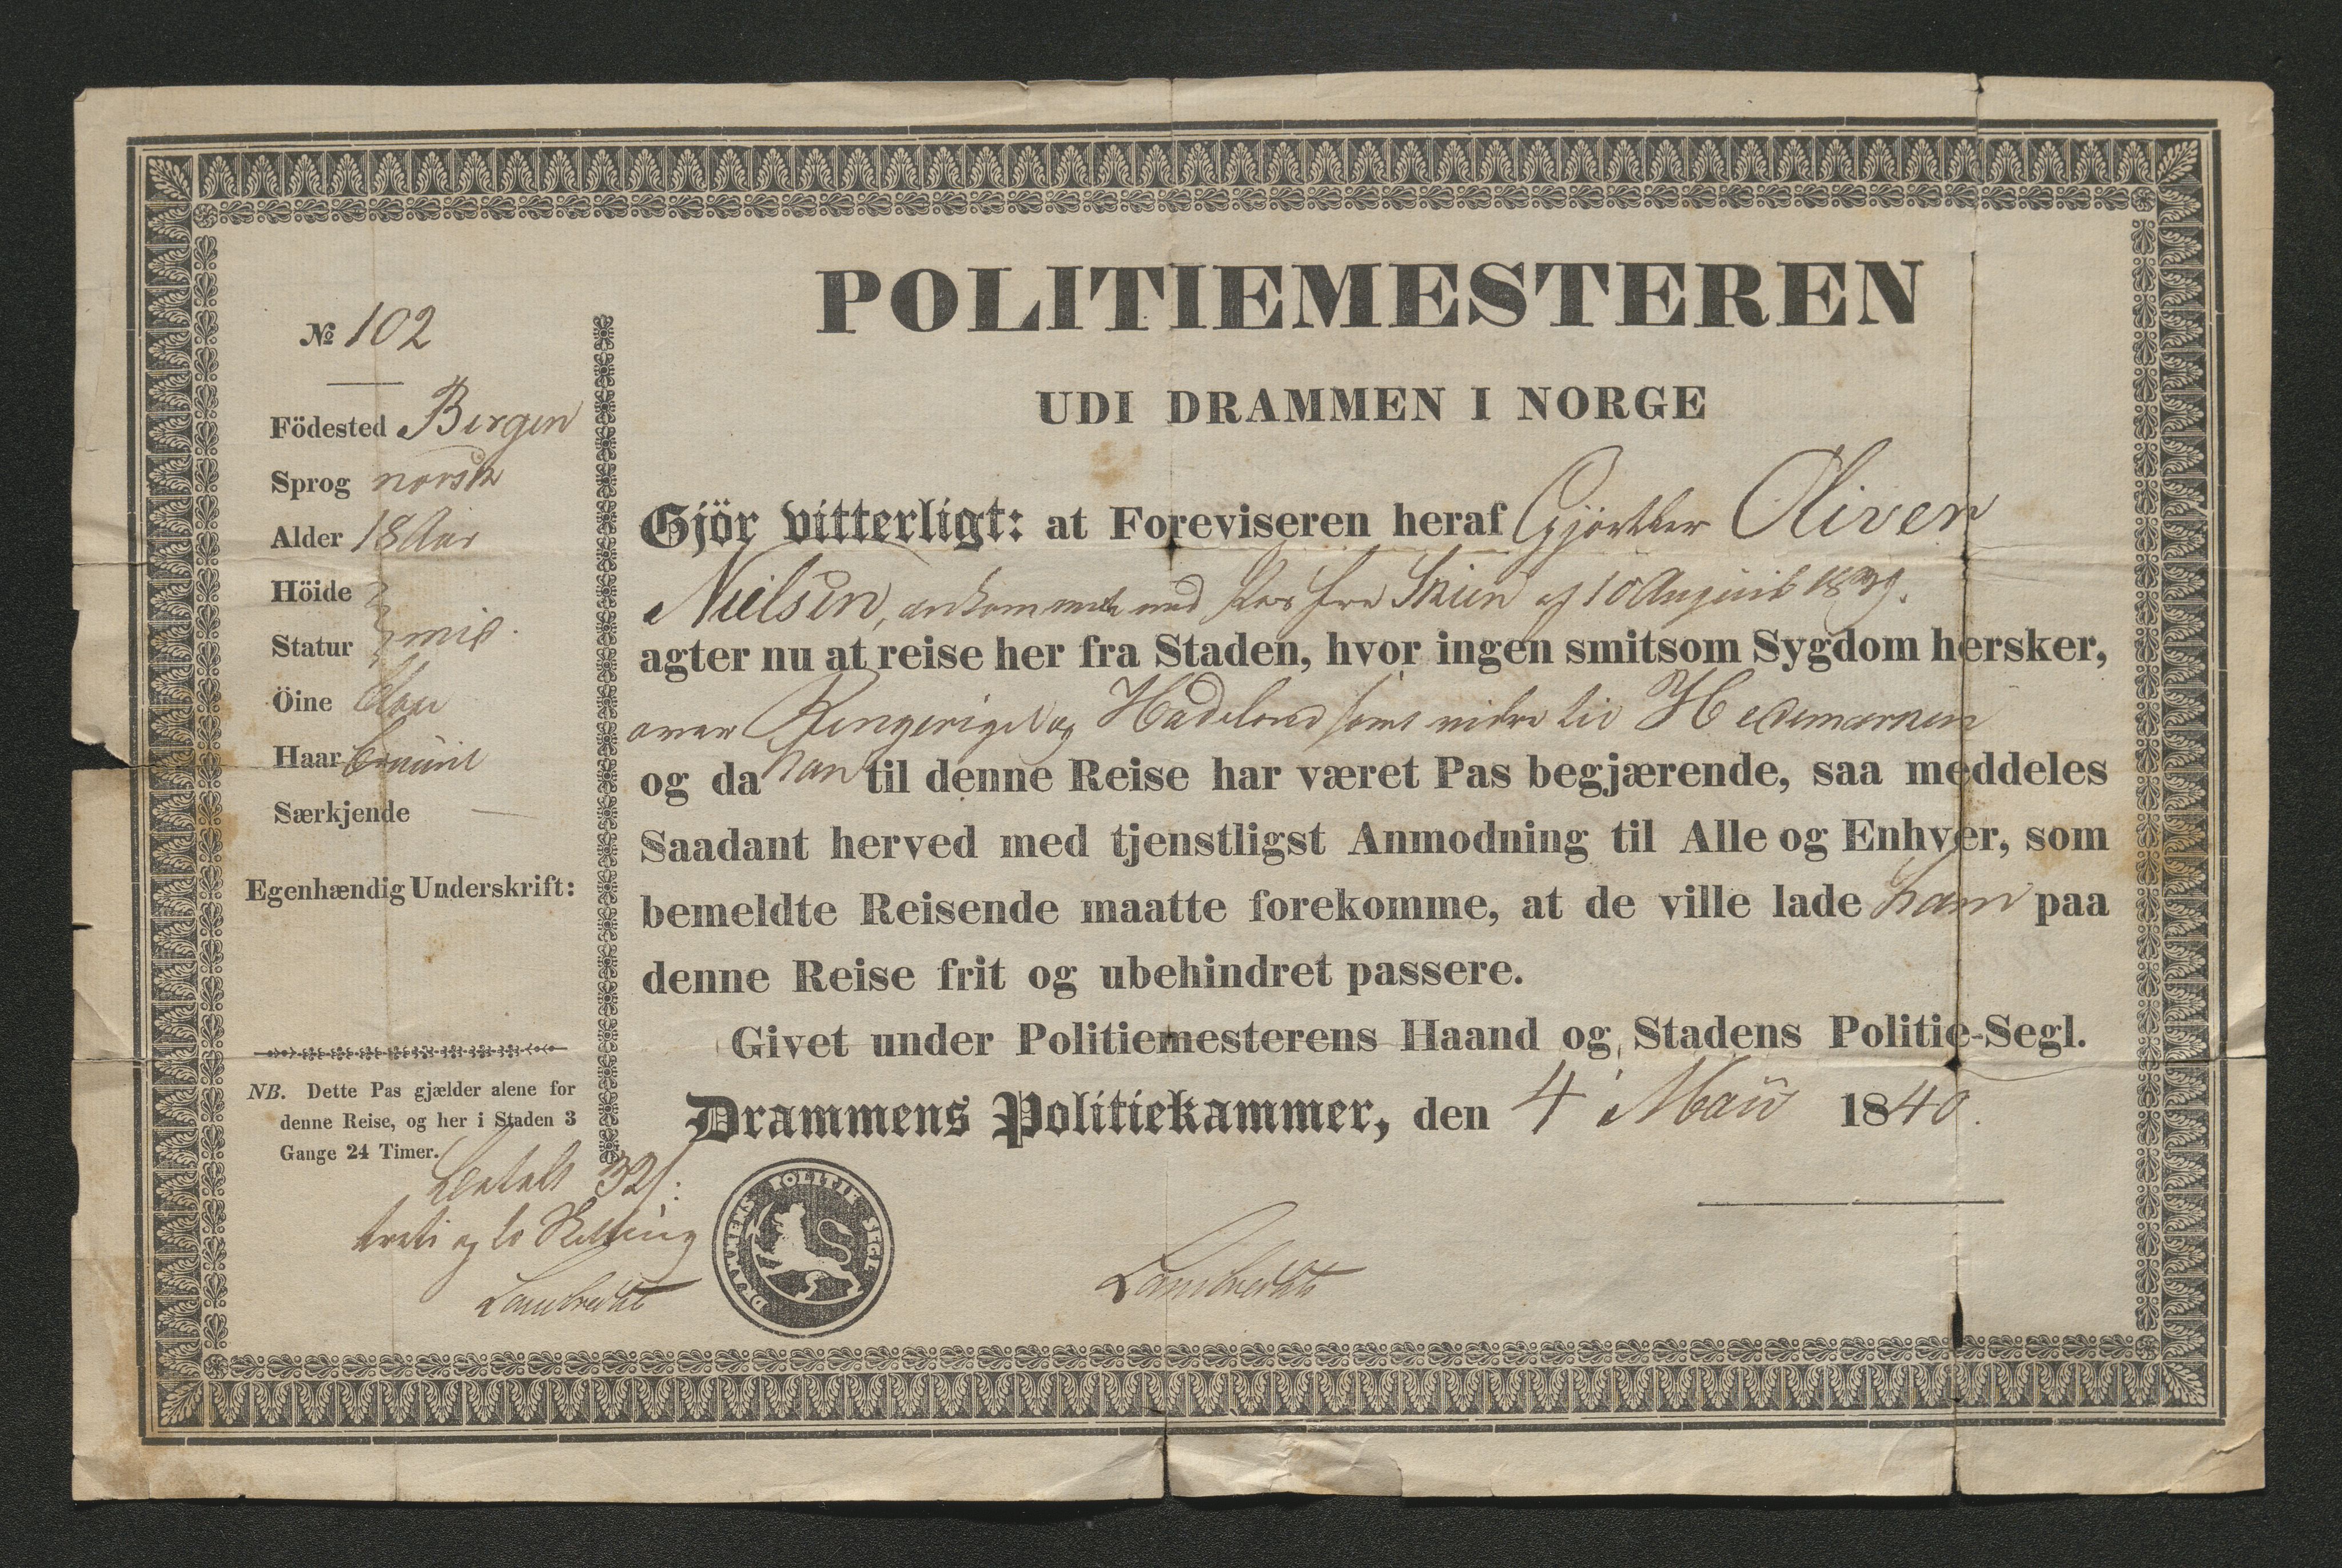 № 102
Födested Bergen
Sprog norsk
Alder 18 Aar
Höide
Statur mid.
Öine blau
Haar bruunt
Særkjende —
Egenhændig Underskrift:
NB. Dette Pas gjælder alene for
denne Reise, og her i Staden 3
Gange 24 Timer.
betalt 32 s:
treti og to Skilling
Lambrechts
POLITIEMESTEREN
UDI DRAMMEN I NORGE
Gjör vitterligt: at Foreviseren heraf Gjørtler Oliver
Nielsen, ankommen med Pas fra Skien af 10 August 1839.
agter nu at reise her fra Staden, hvor ingen smitsom Sygdom hersker,
over Ringeriget og Hadeland samt videre til Hedemarken
og da han til denne Reise har været Pas begjærende, saa meddeles
Saadant herved med tjenstligst Anmodning til Alle og Enhver, som
bemeldte Reisende maatte forekomme, at de ville lade ham paa
denne Reise frit og ubehindret passere.
Givet under Politiemesterens Haand og Stadens Politie-Segl.
Drammens Politiekammer, den 4 Maii 1840.
DRAMMENS POLITIE SIGEL
Lambrechts